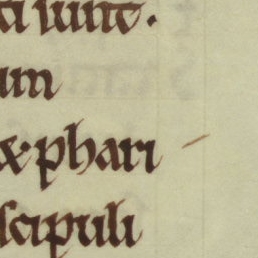 ti sunt.
um
& phari
scipuli